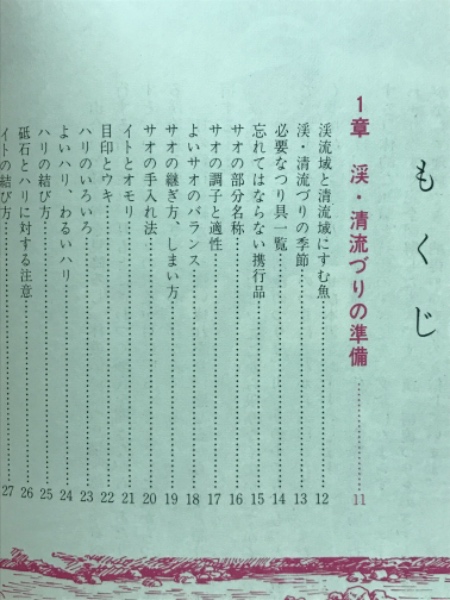 もくじ
1章 渓・清流づりの準備 11
渓流域と清流域にすむ魚 12
渓・清流づりの季節 13
必要なつり具一覧 14
忘れてはならない携行品 15
サオの部分名称 16
サオの調子と適性 17
よいサオのバランス 18
サオの継ぎ方、しまい方 19
サオの手入れ法 20
イトとオモリ 21
目印とウキ 22
ハリのいろいろ 23
よいハリ、わるいハリ 24
ハリの結び方 25
砥石とハリに対する注意 26
イトの結び方 27